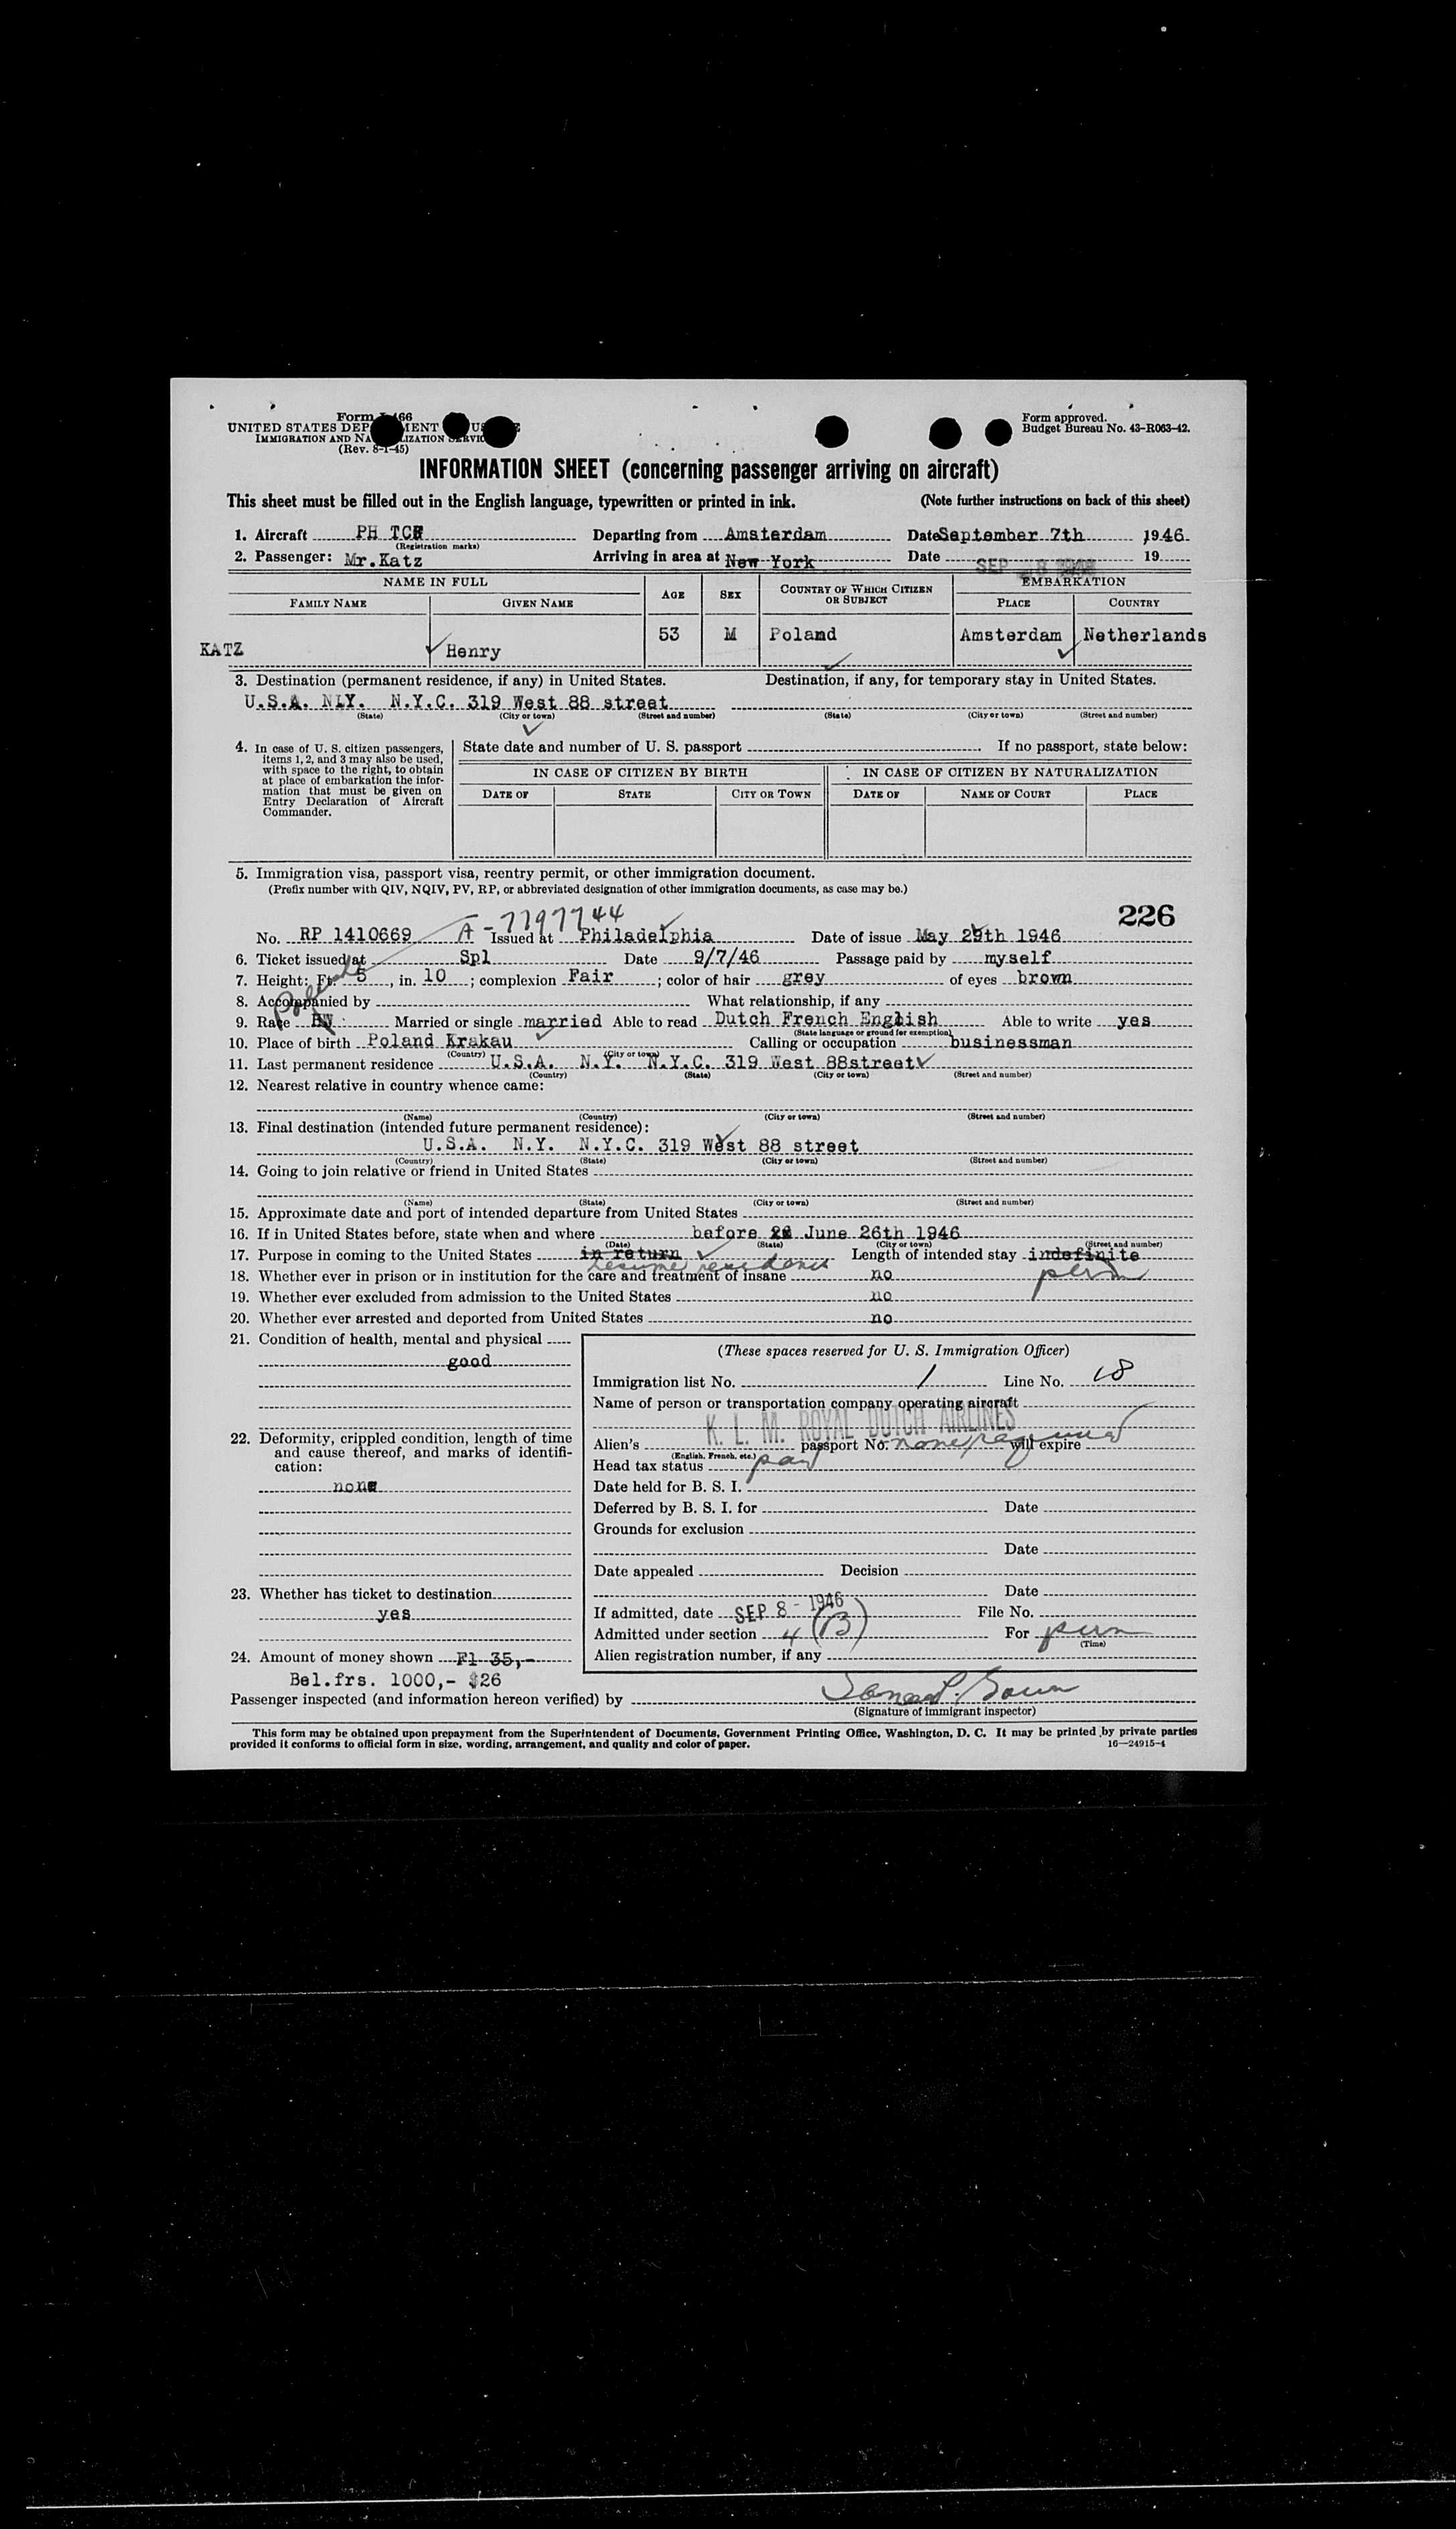 Form I-466
UNITED STATES DEPARTMENT OF JUSTICE
IMMIGRATION AND NATURALIZATION SERVICE
(Rev. 8-1-45)
Form approved.
Budget Bureau No. 43-R063-42.
INFORMATION SHEET (concerning passenger arriving on aircraft)
This sheet must be filled out in the English language, typewritten or printed in ink. (Note further instructions on back of this sheet)
1. Aircraft PH Departing from Amsterdam Date September 7th 1946
(Registration marks)
2. Passenger: Mr.Katz Arriving in area at New York Date SEP 8 1946 19
NAME IN FULL AGE SEX COUNTRY OF WHICH CITIZEN OR SUBJECT EMBARKATION
FAMILY NAME GIVEN NAME PLACE COUNTRY
KATZ Henry 53 M Poland Amsterdam Netherlands
3. Destination (permanent residence, if any) in United States. Destination, if any, for temporary stay in United States.
U.S.A. N.Y. N.Y.C. 319 West 88 street
(State) (City or town) (Street and number) (State) (City or town) (Street and number)
4. In case of U. S. citizen passengers, items 1, 2, and 3 may also be used, with space to the right, to obtain at place of embarkation the information that must be given on Entry Declaration of Aircraft Commander.
State date and number of U. S. passport If no passport, state below:
IN CASE OF CITIZEN BY BIRTH IN CASE OF CITIZEN BY NATURALIZATION
DATE OF STATE CITY OR TOWN DATE OF NAME OF COURT PLACE
5. Immigration visa, passport visa, reentry permit, or other immigration document.
(Prefix number with QIV, NQIV, PV, RP, or abbreviated designation of other immigration documents, as case may be.)
226
A-7797744
No. RP 1410669 Issued at Philadelphia Date of issue May 29th 1946
6. Ticket issued at Spl Date 9/7/46 Passage paid by myself
7. Height: Ft. 5, in. 10; complexion Fair; color of hair grey of eyes brown
8. Accompanied by What relationship, if any
Polish
9. Race Married or single married Able to read Dutch French English Able to write yes
(State language or ground for exemption)
10. Place of birth Poland Krakau Calling or occupation businessman
(Country) (City or town)
11. Last permanent residence U.S.A. N.Y. N.Y.C. 319 West 88street
(Country) (State) (City or town) (Street and number)
12. Nearest relative in country whence came:
(Name) (Country) (City or town) (Street and number)
13. Final destination (intended future permanent residence):
U.S.A. N.Y. N.Y.C. 319 West 88 street
(Country) (State) (City or town) (Street and number)
14. Going to join relative or friend in United States
(Name) (State) (City or town) (Street and number)
15. Approximate date and port of intended departure from United States
16. If in United States before, state when and where before June 26th 1946
(Date) (State) (City or town) (Street and number)
17. Purpose in coming to the United States in return Length of intended stay indefinite
resume residence perm
18. Whether ever in prison or in institution for the care and treatment of insane no
19. Whether ever excluded from admission to the United States no
20. Whether ever arrested and deported from United States no
21. Condition of health, mental and physical
good
22. Deformity, crippled condition, length of time and cause thereof, and marks of identification:
none
23. Whether has ticket to destination
yes
24. Amount of money shown Fl 35,-
Bel.frs. 1000,- $26
(These spaces reserved for U. S. Immigration Officer)
Immigration list No. 1 Line No. 18
Name of person or transportation company operating aircraft
K. L. M. ROYAL DUTCH AIRLINES
Alien's passport No. none required will expire
(English, French, etc.)
Head tax status
Date held for B. S. I.
Deferred by B. S. I. for Date
Grounds for exclusion
Date
Date appealed Decision
Date
If admitted, date SEP 8 - 1946 File No.
Admitted under section 4 (B) For perm
(Time)
Alien registration number, if any
Passenger inspected (and information hereon verified) by
(Signature of immigrant inspector)
This form may be obtained upon prepayment from the Superintendent of Documents, Government Printing Office, Washington, D. C. It may be printed by private parties
provided it conforms to official form in size, wording, arrangement, and quality and color of paper. 16—24915-4